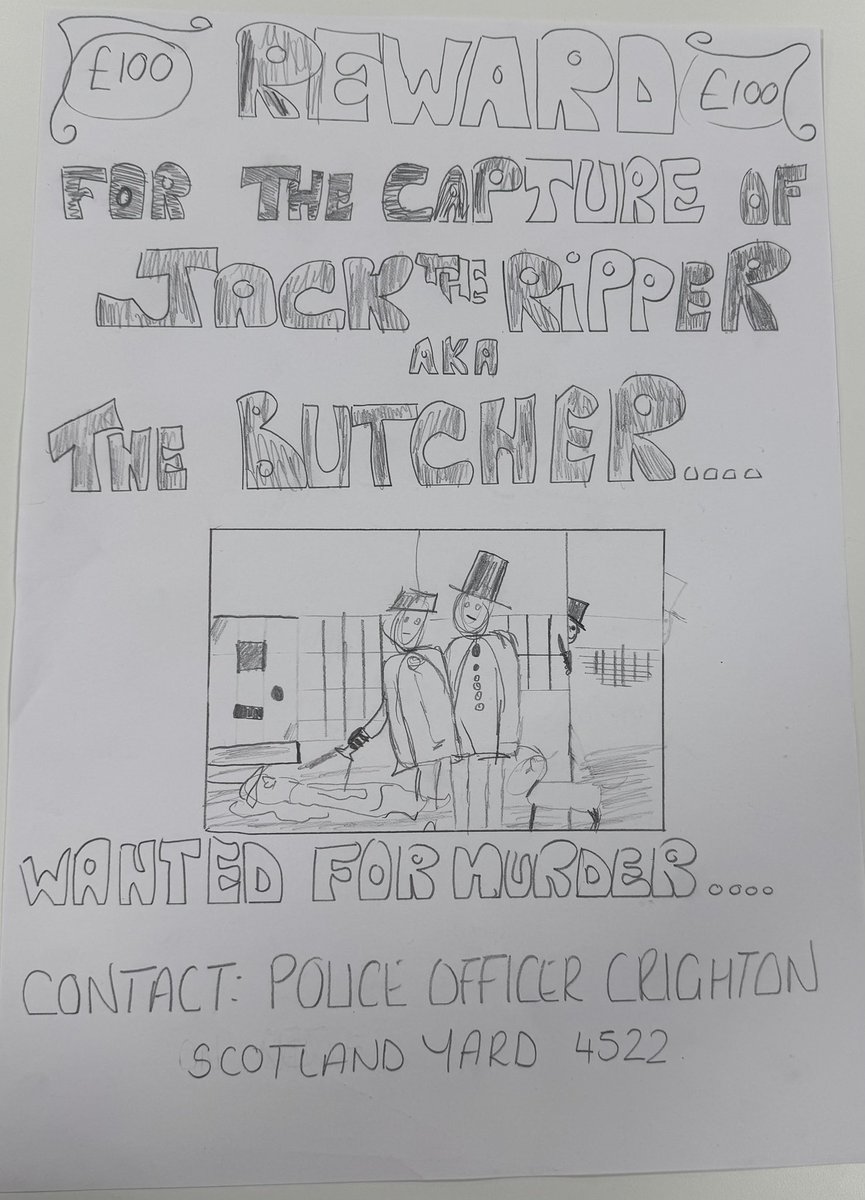 £100 REWARD £100
FOR THE CAPTURE OF
JACK THE RiPPER
AKA
THE BUTCHER....
WANTED FOR MURDER....
CONTACT: POLICE OFFICER CRIGHTON
SCOTLAND YARD 4522